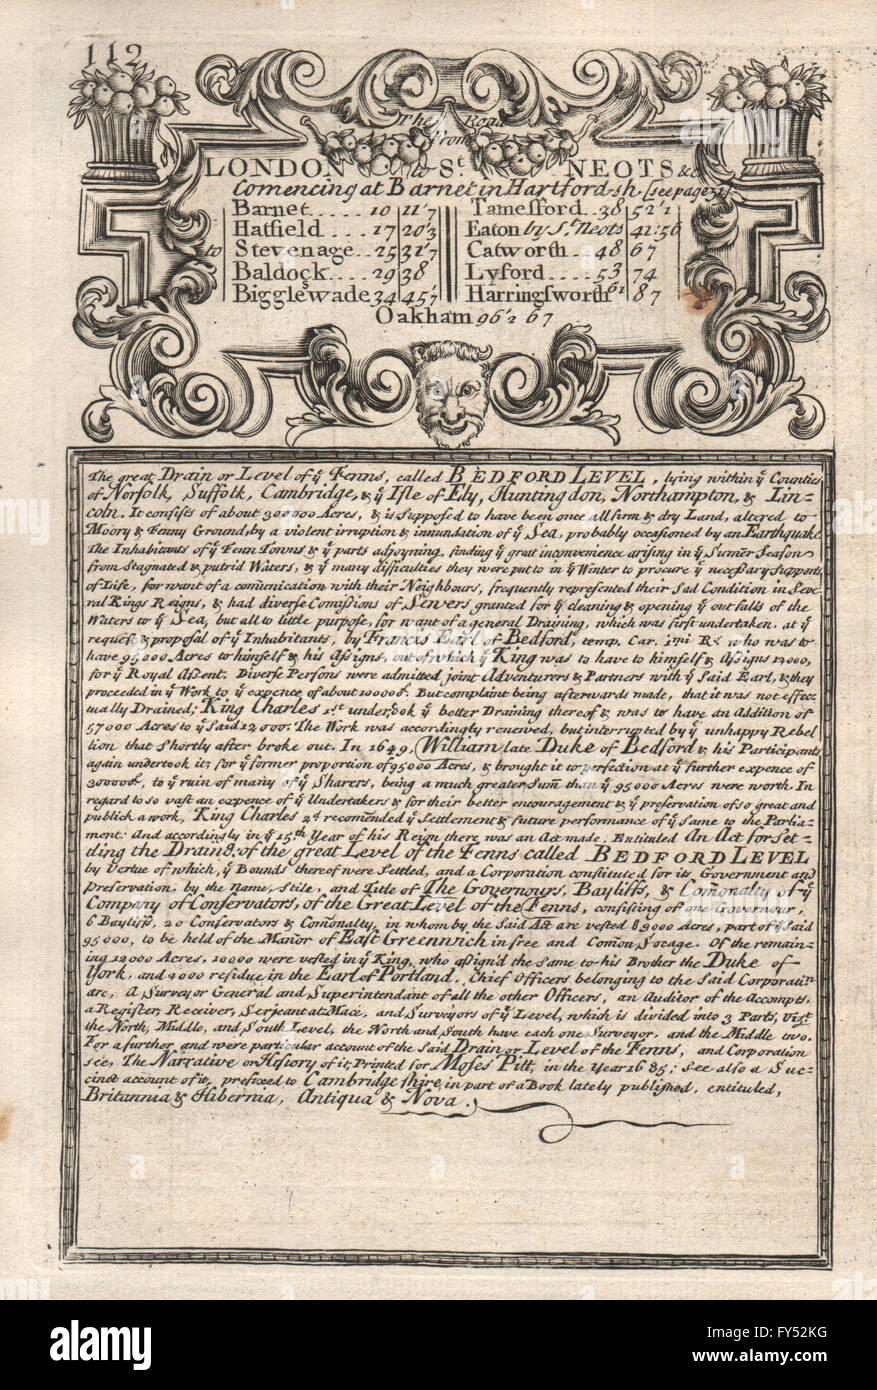 112
The Road
From
LONDON to St. NEOTS &c
Comencing at Barnet in Hartford-sh. (see page 31)
Barnet.... 10 11'7
Hatfield... 17 20'3
to Stevenage.. 25 31'7
Baldock... 29 38
Bigglewade 34 45'7
Tamesford.. 38 52'1
Eaton by St. Neots 41:56
Catworth.. 48 67
Lyford.... 53 74
Harringsworth 61 87
Oakham 96'2 67
The great Drain or Level of ye Fenns, called BEDFORD LEVEL, lying within ye Counties
of Norfolk, Suffolk, Cambridge, & ye Isle of Ely, Huntingdon, Northampton, & Lin=
coln. It consists of about 300000 Acres, & is Supposed to have been once all firm & dry Land, altered to
Moory & Fenny Ground, by a violent irruption & innundation of ye Sea, probably occasioned by an Earthquake.
The Inhabitants of ye Fenn Towns & ye parts adjoyning, finding ye great inconvenience arising in ye Sumer Season
from Stagnated & putrid Waters, & ye many difficulties they were put to in ye Winter to procure ye necessary Supports
of Life, for want of a comunication with their Neighbours, frequently represented their Sad Condition in Seve
ral Kings Reigns, & had diverse Comissions of Sewers granted for ye cleaning & opening ye out falls of the
Waters to ye Sea, but all to little purpose, for want of a general Draining, which was first undertaken, at ye
request & proposal of ye Inhabitants, by Francis Earl of Bedford, temp. Car. 1mi Rs. who was to
have 95000 Acres to himself & his Assigns, out of which ye King was to have to himself & Assigns 12000,
for ye Royal Assent. Diverse Persons were admitted joint Adventurers & Partners with ye Said Earl, & they
proceeded in ye Work to ye expence of about 100000£. But complaint being afterwards made, that it was not effec=
tually Drained; King Charles 1st undertook ye better Draining thereof & was to have an Addition of
57000 Acres to ye Said 12000. The Work was accordingly renewed, but interrupted by ye unhappy Rebel
lion that shortly after broke out. In 1649, William late Duke of Bedford & his Participants
again undertook it; for ye former proportion of 95000 Acres, & brought it to perfection at ye further expence of
300000£, to ye ruin of many of ye Sharers, being a much greater Sum than ye 95000 Acres were worth. In
regard to so vast an expence of ye Undertakers & for their better encouragement & ye preservation of so great and
publick a work, King Charles 2d recomended ye Settlement & future performance of ye Same to the Parlia=
ment: And accordingly in ye 15th Year of his Reign there was an Act made. Entituled An Act for Set=
tling the Draing. of the great Level of the Fenns called BEDFORD LEVEL
by Vertue of which, ye Bounds thereof were Settled, and a Corporation constituted for its Government and
preservation, by the Name, Stile, and Title of The Governours, Bayliffs, & Comonalty of ye
Company of Conservators, of the Great Level of the Fenns, consisting of one Governour,
6 Bayliffs, 20 Conservators & Comonalty, in whom by the Said Act are vested 83000 Acres, part of ye Said
95000, to be held of the Manor of East Greenwich in free and Comon Socage. Of the remain=
ing 12000 Acres, 10000 were vested in ye King, who assign'd the Same to his Brother the Duke of
York, and 2000 residue in the Earl of Portland. Chief Officers belonging to the Said Corporatin
are, A Surveyor General and Superintendant of all the other Officers, an Auditor of the Accompts,
a Register, Receiver, Serjeant at Mace, and Surveyors of ye Level, which is divided into 3 Parts, Vizt
the North, Middle, and South Level, the North and South have each one Surveyor, and the Middle two.
For a further and more particular account of the Said Drain or Level of the Fenns, and Corporation
see, The Narrative or History of it, Printed for Moses Pitt, in the Year 1685: See also a Suc=
cinct account of it, prefixed to Cambridgeshire, in part of a Book lately published, entituled,
Britannia & Hibernia, Antiqua & Nova.
alamy
Image ID: FY52KG
www.alamy.com